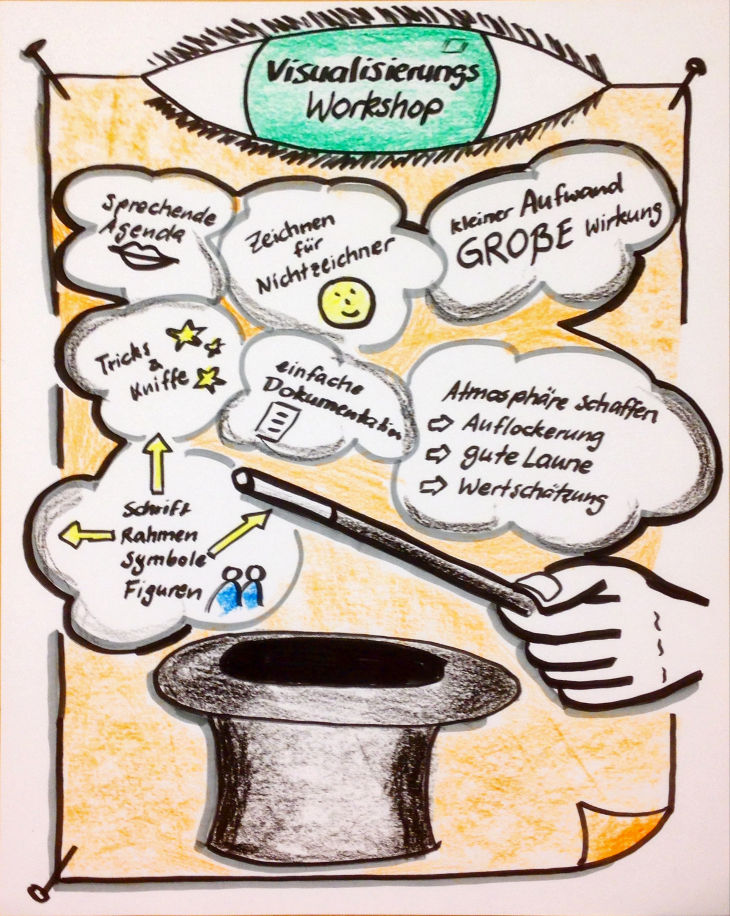 Visualisierungs
Workshop
Sprechende
Agenda
Zeichnen
für
Nichtzeichner
kleiner Aufwand
GROßE Wirkung
Tricks
&
Kniffe
einfache
Dokumentation
Atmosphäre schaffen
⇨ Auflockerung
⇨ gute Laune
⇨ Wertschätzung
Schrift
Rahmen
Symbole
Figuren